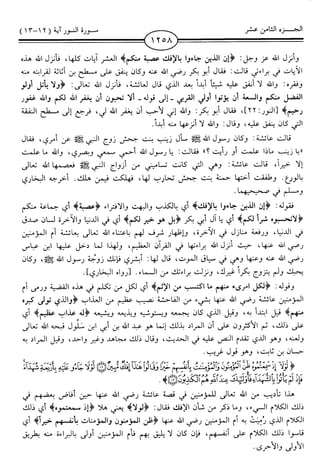 الجزء الثامن عشر
١٢٥٨
سورة النور آية (١٢-١٣)
وأنزل الله عز وجل: ﴿إن الذين جاءوا بالإفك عصبة منكم﴾ العشر آيات كلها، فأنزل الله هذه
الآيات في براءتي قالت: فقال أبو بكر رضي الله عنه وكان ينفق على مسطح بن أثاثة لقرابته منه
وفقره: والله لا أنفق عليه شيئاً أبداً بعد الذي قال لعائشة، فأنزل الله تعالى: ﴿ولا يأتل أولو
الفضل منكم والسعة أن يؤتوا أولي القربى - إلى قوله - ألا تحبون أن يغفر الله لكم والله غفور
رحيم﴾ [النور: ٢٢]، فقال أبو بكر: والله إني لأحب أن يغفر الله لي، فرجع إلى مسطح النفقة
التي كان ينفق عليه، وقال: والله لا أنزعها منه أبداً.
قالت عائشة: وكان رسول الله ﷺ سأل زينب بنت جحش زوج النبي ﷺ عن أمري، فقال
«يا زينب ماذا علمت أو رأيت؟» فقالت: يا رسول الله أحمي سمعي وبصري، والله ما علمت
إلا خيراً، قالت عائشة: وهي التي كانت تساميني من أزواج النبي ﷺ فعصمها الله تعالى
بالورع. وطفقت أختها حمنة بنت جحش تحارب لها، فهلكت فيمن هلك. أخرجه البخاري
ومسلم في صحيحيهما.
فقوله: ﴿إن الذين جاءوا بالإفك﴾ أي بالكذب والبهت والافتراء ﴿عصبة﴾ أي جماعة منكم
﴿لا تحسبوه شراً لكم﴾ أي يا آل أبي بكر ﴿بل هو خير لكم﴾ أي في الدنيا والآخرة لسان صدق
في الدنيا، ورفعة منازل في الآخرة، وإظهار شرف لهم باعتناء الله تعالى بعائشة أم المؤمنين
رضي الله عنها، حيث أنزل الله براءتها في القرآن العظيم، ولهذا لما دخل عليها ابن عباس
رضي الله عنه وعنها وهي في سياق الموت، قال لها: أبشري فإنك زوجة رسول الله ﷺ، وكان
يحبك ولم يتزوج بكراً غيرك، ونزلت براءتك من السماء. [رواه البخاري].
وقوله: ﴿لكل امرىء منهم ما اكتسب من الإثم﴾ أي لكل من تكلم في هذه القضية ورمى أم
المؤمنين عائشة رضي الله عنها بشيء من الفاحشة نصيب عظيم من العذاب ﴿والذي تولى كبره
منهم﴾ قيل ابتدأ به، وقيل الذي كان يجمعه ويستوشيه ويذيعه ويشيعه ﴿له عذاب عظيم﴾ أي
على ذلك، ثم الأكثرون على أن المراد بذلك إنما هو عبد الله بن أبي ابن سلول قبحه الله تعالى
ولعنه، وهو الذي تقدم النص عليه في الحديث، وقال ذلك مجاهد وغير واحد، وقيل المراد به
حسان بن ثابت، وهو قول غريب.
﴿لَّوْلَا إِذْ سَمِعْتُمُوهُ ظَنَّ الْمُؤْمِنُونَ وَالْمُؤْمِنَاتُ بِأَنفُسِهِمْ خَيْرًا وَقَالُوا هَٰذَا إِفْكٌ مُّبِينٌ لَّوْلَا جَاءُوا عَلَيْهِ بِأَرْبَعَةِ شُهَدَاءَ
فَإِذْ لَمْ يَأْتُوا بِالشُّهَدَاءِ فَأُولَٰئِكَ عِندَ اللَّهِ هُمُ الْكَاذِبُونَ﴾.
هذا تأديب من الله تعالى للمؤمنين في قصة عائشة رضي الله عنها حين أفاض بعضهم في
ذلك الكلام السيىء، وما ذكر من شأن الإفك فقال: ﴿لولا﴾ يعني هلا ﴿إذ سمعتموه﴾ أي ذلك
الكلام الذي رُميت به أم المؤمنين رضي الله عنها ﴿ظن المؤمنون والمؤمنات بأنفسهم خيراً﴾ أي
قاسوا ذلك الكلام على أنفسهم، فإن كان لا يليق بهم فأم المؤمنين أولى بالبراءة منه بطريق
الأولى والأحرى.